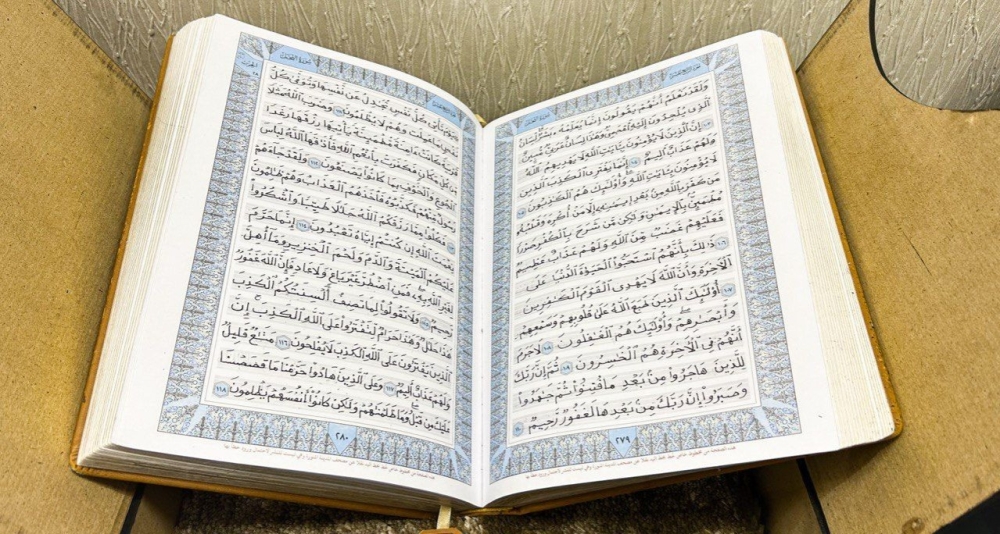 الجزء الرابع عشر
سورة النحل
وَلَقَدْ نَعْلَمُ أَنَّهُمْ يَقُولُونَ إِنَّمَا يُعَلِّمُهُۥ بَشَرٌ لِّسَانُ
ٱلَّذِى يُلْحِدُونَ إِلَيْهِ أَعْجَمِىٌّ وَهَٰذَا لِسَانٌ عَرَبِىٌّ مُّبِينٌ
١٠٣ إِنَّ ٱلَّذِينَ لَا يُؤْمِنُونَ بِـَٔايَٰتِ ٱللَّهِ لَا يَهْدِيهِمُ ٱللَّهُ
وَلَهُمْ عَذَابٌ أَلِيمٌ ١٠٤ إِنَّمَا يَفْتَرِى ٱلْكَذِبَ ٱلَّذِينَ
لَا يُؤْمِنُونَ بِـَٔايَٰتِ ٱللَّهِ وَأُو۟لَٰٓئِكَ هُمُ ٱلْكَٰذِبُونَ ١٠٥
مَن كَفَرَ بِٱللَّهِ مِنۢ بَعْدِ إِيمَٰنِهِۦٓ إِلَّا مَنْ أُكْرِهَ وَقَلْبُهُۥ
مُطْمَئِنٌّۢ بِٱلْإِيمَٰنِ وَلَٰكِن مَّن شَرَحَ بِٱلْكُفْرِ صَدْرًا
فَعَلَيْهِمْ غَضَبٌ مِّنَ ٱللَّهِ وَلَهُمْ عَذَابٌ عَظِيمٌ
١٠٦ ذَٰلِكَ بِأَنَّهُمُ ٱسْتَحَبُّوا۟ ٱلْحَيَوٰةَ ٱلدُّنْيَا عَلَى
ٱلْـَٔاخِرَةِ وَأَنَّ ٱللَّهَ لَا يَهْدِى ٱلْقَوْمَ ٱلْكَٰفِرِينَ
١٠٧ أُو۟لَٰٓئِكَ ٱلَّذِينَ طَبَعَ ٱللَّهُ عَلَىٰ قُلُوبِهِمْ وَسَمْعِهِمْ
وَأَبْصَٰرِهِمْ وَأُو۟لَٰٓئِكَ هُمُ ٱلْغَٰفِلُونَ ١٠٨ لَا جَرَمَ
أَنَّهُمْ فِى ٱلْـَٔاخِرَةِ هُمُ ٱلْخَٰسِرُونَ ١٠٩ ثُمَّ إِنَّ رَبَّكَ
لِلَّذِينَ هَاجَرُوا۟ مِنۢ بَعْدِ مَا فُتِنُوا۟ ثُمَّ جَٰهَدُوا۟
وَصَبَرُوٓا۟ إِنَّ رَبَّكَ مِنۢ بَعْدِهَا لَغَفُورٌ رَّحِيمٌ ١١٠
٢٧٩
سورة النحل
يَوْمَ تَأْتِى كُلُّ نَفْسٍ تُجَٰدِلُ عَن نَّفْسِهَا وَتُوَفَّىٰ كُلُّ
نَفْسٍ مَّا عَمِلَتْ وَهُمْ لَا يُظْلَمُونَ ١١١ وَضَرَبَ ٱللَّهُ مَثَلًا
قَرْيَةً كَانَتْ ءَامِنَةً مُّطْمَئِنَّةً يَأْتِيهَا رِزْقُهَا رَغَدًا
مِّن كُلِّ مَكَانٍ فَكَفَرَتْ بِأَنْعُمِ ٱللَّهِ فَأَذَٰقَهَا ٱللَّهُ لِبَاسَ
ٱلْجُوعِ وَٱلْخَوْفِ بِمَا كَانُوا۟ يَصْنَعُونَ ١١٢ وَلَقَدْ جَآءَهُمْ
رَسُولٌ مِّنْهُمْ فَكَذَّبُوهُ فَأَخَذَهُمُ ٱلْعَذَابُ وَهُمْ ظَٰلِمُونَ
١١٣ فَكُلُوا۟ مِمَّا رَزَقَكُمُ ٱللَّهُ حَلَٰلًا طَيِّبًا وَٱشْكُرُوا۟
نِعْمَتَ ٱللَّهِ إِن كُنتُمْ إِيَّاهُ تَعْبُدُونَ ١١٤ إِنَّمَا حَرَّمَ
عَلَيْكُمُ ٱلْمَيْتَةَ وَٱلدَّمَ وَلَحْمَ ٱلْخِنزِيرِ وَمَآ أُهِلَّ
لِغَيْرِ ٱللَّهِ بِهِۦ فَمَنِ ٱضْطُرَّ غَيْرَ بَاغٍ وَلَا عَادٍ فَإِنَّ ٱللَّهَ غَفُورٌ
رَّحِيمٌ ١١٥ وَلَا تَقُولُوا۟ لِمَا تَصِفُ أَلْسِنَتُكُمُ ٱلْكَذِبَ
هَٰذَا حَلَٰلٌ وَهَٰذَا حَرَامٌ لِّتَفْتَرُوا۟ عَلَى ٱللَّهِ ٱلْكَذِبَ إِنَّ
ٱلَّذِينَ يَفْتَرُونَ عَلَى ٱللَّهِ ٱلْكَذِبَ لَا يُفْلِحُونَ ١١٦ مَتَٰعٌ قَلِيلٌ
وَلَهُمْ عَذَابٌ أَلِيمٌ ١١٧ وَعَلَى ٱلَّذِينَ هَادُوا۟ حَرَّمْنَا مَا قَصَصْنَا
عَلَيْكَ مِن قَبْلُ وَمَا ظَلَمْنَٰهُمْ وَلَٰكِن كَانُوٓا۟ أَنفُسَهُمْ يَظْلِمُونَ ١١٨
٢٨٠